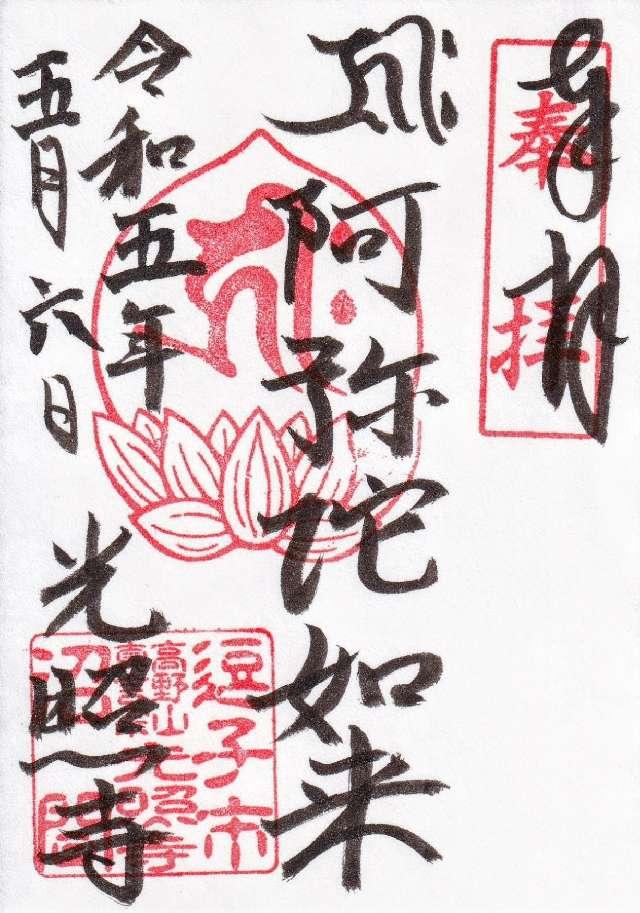 奉拝
奉拝
阿弥陀如来
令和五年
五月六日
光照寺
逗子市
高野山
光照寺
沼間